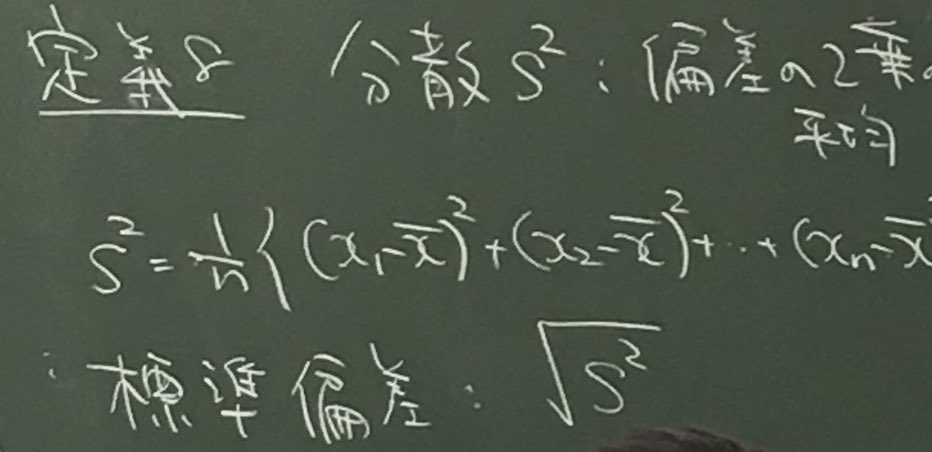 定義8 分散 S²:偏差の2乗の
平均
S² = 1/n { (x₁-x̄)² + (x₂-x̄)² + ‥ + (xₙ-x̄
標準偏差:√S²